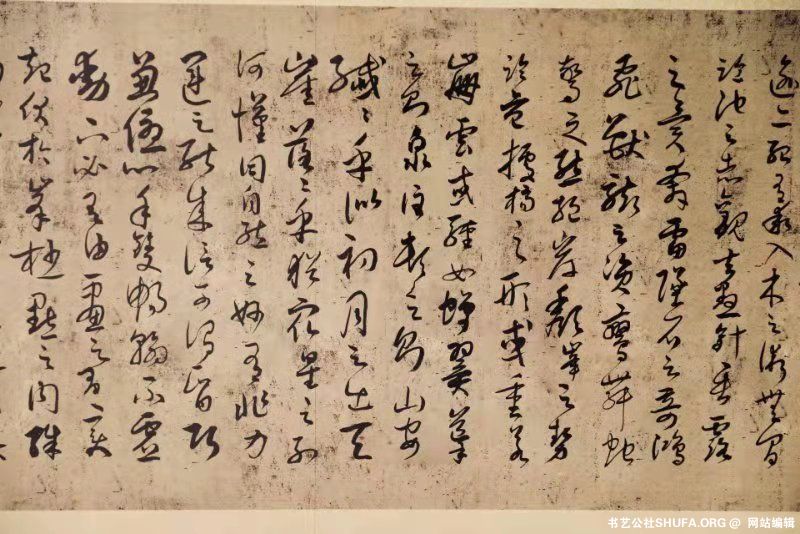 逾二紀有乖入木之術無間
臨池之志觀夫懸針垂露
之異奔雷墜石之奇鴻
飛獸駭之資鸞舞蛇
驚之態絕岸頹峯之勢
臨危據槁之形或重若
崩雲或輕如蟬翼導
之則泉注頓之則山安
纖〻乎似初月之出天
崖落〻乎猶衆星之列
河漢同自然之妙有非力
運之能成信可謂智巧
兼優心手雙暢翰不虛
動下必有由一畫之間變
起伏於峯杪一點之內殊
书艺公社SHUFA.ORG @ 网站编辑